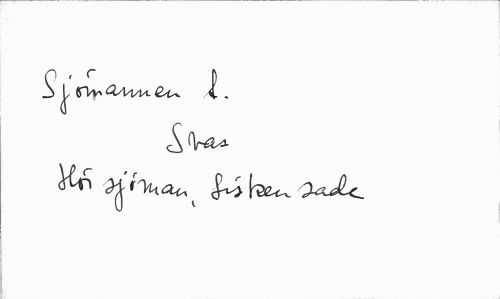 Sjömannen t.
Svas
Hör sjöman, fisken sade